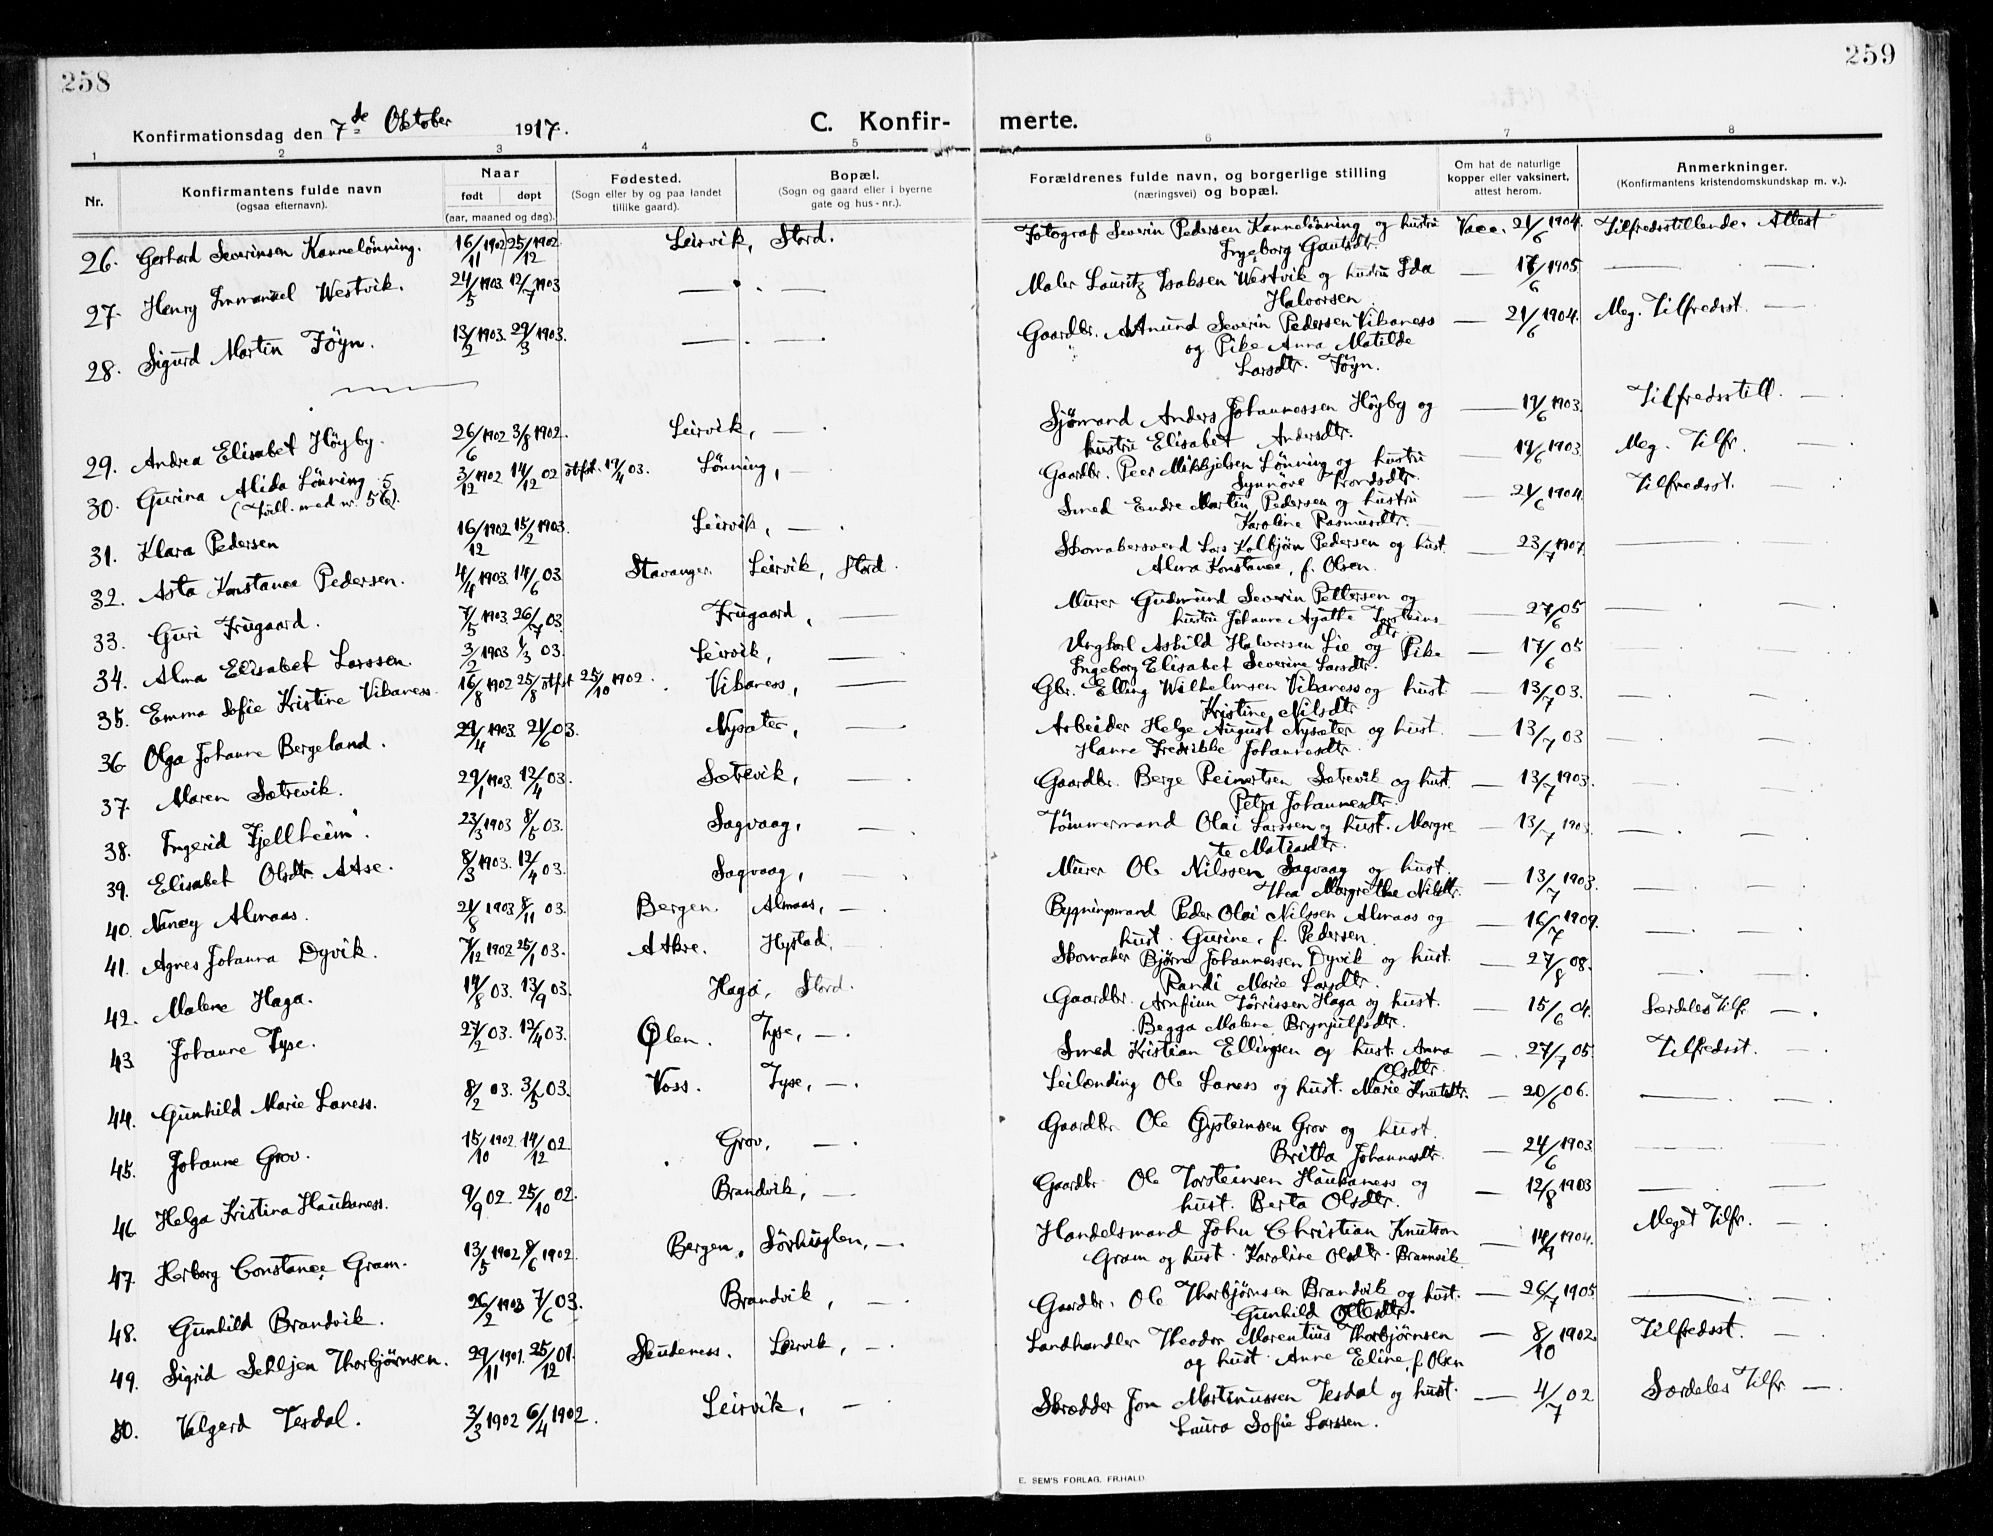 258
259
Konfirmationsdag den 7de Oktober 1917.
C. Konfir- merte.
1 2 3 4 5 6 7 8
Nr.
Konfirmantens fulde navn
(ogsaa efternavn).
Naar
født døpt
(aar, maaned og dag).
Fødested.
(Sogn eller by og paa landet
tillike gaard).
Bopæl.
(Sogn og gaard eller i byerne
gate og hus-nr.).
Forældrenes fulde navn, og borgerlige stilling
(næringsvei) og bopæl.
Om hat de naturlige
kopper eller vaksinert,
attest herom.
Anmerkninger.
(Konfirmantens kristendomskundskap m. v.).
26. Gerhard Severinsen Kannelönning. 16/11 1902 25/12 1902. Leirvik, Stord. Fotograf Severin Pedersen Kannelönning og hustru Vacc. 21/6 1904. Tilfredsstillende. Attest
Ingeborg Gautsdtr.
27. Henry Immanuel Westvik. 24/5 1903. 12/7 1903 — . — Maler Lauritz Isaksen Westvik og hustru Ida — 17/6 1905 — —
Halvorsen.
28. Sigurd Martin Föyn. 13/2 1903. 29/3 1903. — . — Gaardbr. Amund Severin Pedersen Vikaness — 21/6 1904. Meg. Tilfredsst. —
og Pike Anna Matilde
Larsdtr. Föyn.
29. Andrea Elisabet Höyby. 26/6 1902 3/8 1902. Leirvik, — . Sjömand Anders Johannessen Höyby og — 19/6 1903. Tilfredsstill. —
hustru Elisabet Andersdtr.
30. Gurina Alida Lönning. 3/12 1902 14/12 02 stfst. 19/4 03. Lönning, — Gaardbr. Peer Mikkjelsen Lönning og hustru — 19/6 1903. Meg. Tilfr. —
(Tvill. med nr. 56). Synnöve Trondsdtr.
31. Klara Pedersen 16/12 1902 15/2 1903. Leirvik, — . Smed Endre Martin Pedersen og hustru — 21/6 1904. Tilfredsst. —
Karoline Rasmusdtr.
32. Asta Konstance Pedersen. 4/4 1903. 14/6 03. Stavanger. Leirvik, Stord. Skomakersvend Lars Kolbjörn Pedersen og hust. — 23/7 1907. — —
Alma Konstance, f. Olsen.
33. Guri Frugaard. 7/5 1903. 26/7 03. Frugaard, — Murer Gudmund Severin Pettersen og — 27/6 05 — —
hustru Johanne Agathe Torsteinsdtr.
34. Alma Elisabet Larssen. 3/2 1903 1/3 03. Leirvik, — Ungkarl Askild Halvorsen Lie og Pike — 17/6 05
Ingeborg Elisabet Severine Larsdtr.
35. Emma Sofie Kristine Vikaness. 16/8 1902 25/8 stfst 25/10 1902. Vikaness, — Gbr. Elling Wilhelmsen Vikaness og hust — 13/7 03. — —
Kristine Nilsdtr.
36. Olga Johanne Bergeland. 29/4 1903. 21/6 03. Nysæter, — Arbeider Helge August Nysæter og hust. — 13/7 03 — —
Hanne Fredrikke Johannesdtr.
37. Maren Sætrevik. 29/1 1903. 12/4 03. Sætrevik, — Gaardbr. Berge Reinertsen Sætrevik og hust. — 13/7 1903. — —
Petra Johannesdtr.
38. Ingerid Fjellheim. 23/3 1903 8/6 03. Sagvaag, — Tömmermand Olai Larssen og hust. Margre — 13/7 1903. — —
te Matiasdtr.
39. Elisabet Olsdtr. Aase. 8/3 1903. 12/4 03. Sagvaag, — Murer Ole Nilssen Sagvaag og hust. — 13/7 1903. — —
Thea Margrethe Nilsdtr.
40. Nancy Almaas. 21/8 1903 8/11 03. Bergen. Almaas, — Bygningsmand Peder Olai Nilssen Almaas og — 16/7 1909. — —
hust. Gurine, f. Pedersen.
41. Agnes Johanna Dyvik. 7/12 1902 25/1 03. Atkre. Hystad, — Skomaker Bjørne Johannessen Dyvik og hust. — 27/8 08. — —
Randi Marie Larsdtr.
42. Malene Haga. 19/8 03. 13/9 03. Haga, Stord. Gaardbr. Arnfinn Törrissen Haga og hust. — 15/6 04. Særdeles Tilfr. —
Begga Malene Brynjulfsdtr.
43. Johanne Tyse. 27/2 03. 12/4 03. Ølen. Tyse, — . Smed Kristian Ellingsen og hust. Anna — 27/7 05. Tilfredsst. —
Olsdtr.
44. Gunhild Marie Laness. 8/2 03. 3/5 03. Voss. Tyse, — . Leilænding Ole Laness og hust. Marie Knutsdtr. — 20/6 06. — —
45. Johanne Grov. 15/10 1902. 14/12 02 Grov, — . Gaardbr. Ole Øysteinsen Grov og hust. — 24/6 1903. — —
Britha Johannesdtr.
46. Helga Kristina Haukaness. 9/9 02. 25/10 02. Brandvik, — Gaardbr. Ole Torsteinsen Haukaness og — 12/8 1903 — —
hust. Berta Olsdtr.
47. Herborg Constance Gram. 13/5 1902 8/6 1902. Bergen. Sörhuglen, — Handelsmand John Christian Knutson — 14/9 1904. Meget Tilfr. —
Gram og hust. Karoline Olsdtr. Brannvik.
48. Gunhild Brandvik. 26/2 1903 7/6 03. Brandvik, — Gaardbr. Ole Thorbjörnsen Brandvik og hust. — 26/7 1905 — —
Gunhild Olsdtr.
49. Sigrid Sekljen Thorbjörnsen. 29/11 1901. 25/12 01. Skudeness. Leirvik, — Landhandler Theodor Marentius Thorbjörnsen — 8/10 1902. Tilfredsst. —
og hust. Anne Eline, f. Olsen
50. Valgerd Tesdal. 3/3 1902 6/4 1902. Leirvik, — Skrædder Jon Martinussen Tesdal og hust. — 4/7 02 Særdeles Tilfr. —
Laura Sofie Larssen.
E. SEM'S FORLAG, FR.HALD